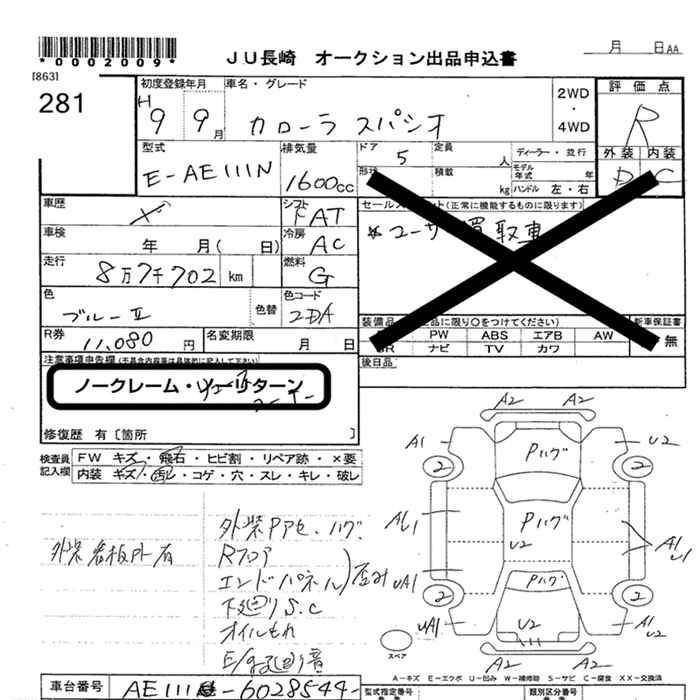 *0002009*
JU長崎 オークション出品申込書
月 日 AA
[863]
281
初度登録年月
H 9 9月
車名・グレード
カローラ スパシオ
2WD
・
4WD
評価点
R
外装 内装
D C
型式
E-AE111N
排気量
1600cc
ドア
5
定員
人
形状
積載
kg
ディーラー・並行
モデル年式 年
ハンドル 左・右
車歴
シフト
FAT
車検
年 月( 日)
冷房
AC
走行
8万7千702 km
燃料
G
色
ブルーII
色替
色コード
2DA
R券
11,080 円
名変期限
月 日
(正常に機能するものに限ります)
装備品
品に限り○をつけてください)
新車保証書
PW ABS エアB AW
ナビ TV カワ
無
後日品
注意事項申告欄(不具合内容等は具体的に記入して下さい)
ノークレーム・ノーリターン
修復歴 有〔箇所 〕
検査員
記入欄
FW キズ・飛石・ヒビ割・リペア跡・×要
内装 キズ・汚レ・コゲ・穴・スレ・キレ・破レ
外装看板跡有
外装PPアセ、ハゲ
Rフロア
エンドパネル)歪み
下廻りS.C
オイルもれ
A2 A2
A1 U2
2 Pハゲ 2
AL1 Pハゲ
U2
A1
U1
UA1 Pハゲ
2 2
UA1 U2 A1
U2
スペア
A2 A2
A-キズ E-エクボ U-凹み W-補修跡 S-サビ C-腐食 XX-交換済
車台番号
AE111 -6028544-
型式指定番号
類別区分番号